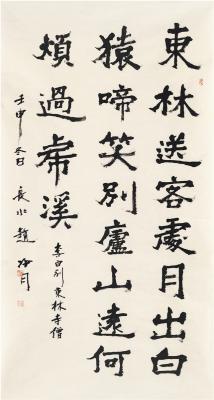 東林送客處月出白
猿啼笑別廬山遠何
煩過虎溪
李白別東林寺僧
壬申冬日長水趙冷月